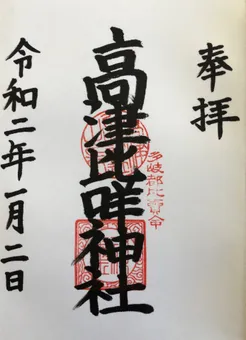 奉拝
高津比咩神社
多岐都比賣命
令和二年一月二日